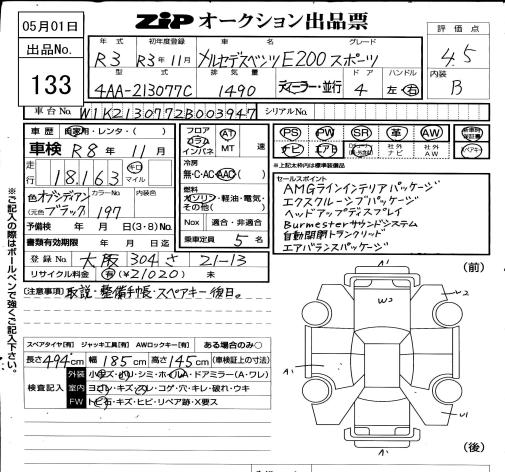 05月01日
出品No.
133
ZIP オークション出品票
評価点
4.5
内装
B
年式 初年度登録 車名 グレード
R3 R3年11月 メルセデスベンツE200スポーツ
型式 排気量 ドア ハンドル
4AA-213077C 1490 ディーラー・並行 4 左・右
車台No. W1K2130772B003947 シリアルNo.
車歴 自家用・レンタ・( )
車検 R8年11月
走行 18,163 キロ マイル
色 オブシディアンブラック (元色 ) カラーNo. 197 内装色
予備検 年 月 日(3・8)No.
書類有効期限 年 月 日迄
登録No. 大阪 304 さ 21-13
リサイクル料金 有(¥21020) 未
フロア コラム インパネ AT MT 速
冷房 無・C・AC・AAC
燃料 ガソリン・軽油・電気・その他( )
Nox 適合・非適合
乗車定員 5 名
PS PW SR 革 AW 新車時保証書
ナビ エアB 社外ナビ 社外AW スペアキー
*上記太枠内は標準装備品
セールスポイント
AMGラインインテリアパッケージ
エクスクルーシブパッケージ
ヘッドアップディスプレイ
Burmesterサウンドシステム
自動開閉トランクリッド
エアバランスパッケージ
※ご記入の際はボールペンで強くご記入下さい。
(注意事項) 取説・整備手帳・スペアキー後日。
スペアタイヤ[有] ジャッキ工具[有] AWロックキー[有] ある場合のみ○
長さ494cm 幅185cm 高さ145cm (車検証上の寸法)
検査記入
外装 小キズ・ハリ・シミ・ホイール・ドアミラー(A・ワレ)
室内 ヨゴレ・キズ・スレ・コゲ・穴・キレ・破れ・ウキ
FW トビ石・キズ・ヒビ・リペア跡・X要ス
(前)
W2
A1
A1
(後)